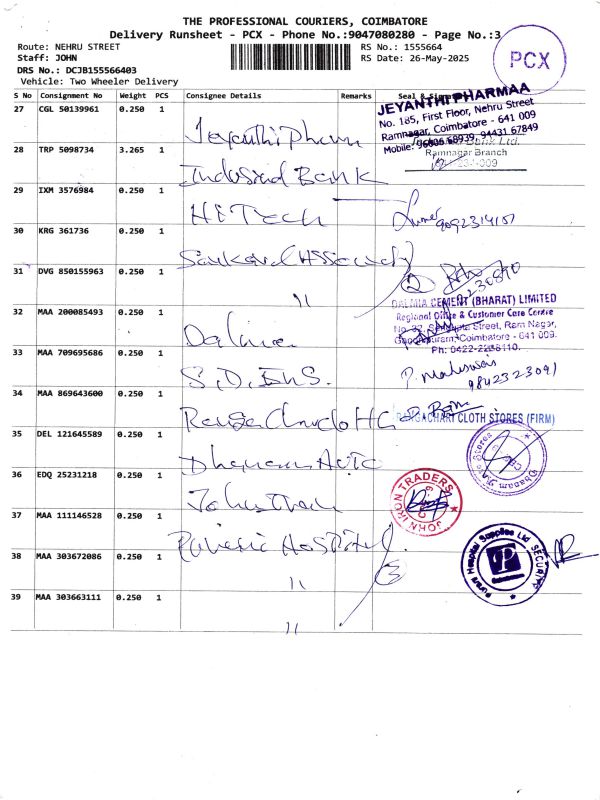 THE PROFESSIONAL COURIERS, COIMBATORE
Delivery Runsheet - PCX - Phone No.:9047080280 - Page No.:3
Route: NEHRU STREET
RS No.: 1555664
Staff: JOHN
RS Date: 26-May-2025
DRS No.: DCJB155566403
Vehicle: Two Wheeler Delivery
PCX
S No Consignment No Weight PCS Consignee Details Remarks Seal &
27 CGL 50139961 0.250 1
JEYANTHI PHARMAA
No. 185, First Floor, Nehru Street
Ramnagar, Coimbatore - 641 009
Mobile: 96006 68939, 94431 67849
28 TRP 5098734 3.265 1 Indusind Bank
Bank Ltd.
Ramnagar Branch
29 IXM 3576984 0.250 1 Hi Tech
9092314151
30 KRG 361736 0.250 1
31 DVG 850155963 0.250 1 11
2
DALMIA CEMENT (BHARAT) LIMITED
Regional Office & Customer Care Centre
Street, Ram Nagar,
Coimbatore - 641 009.
32 MAA 200085493 0.250 1 Dalmia
33 MAA 709695686 0.250 1 S.D. Ens.
9842323091
34 MAA 869643600 0.250 1
CLOTH STORES (FIRM)
35 DEL 121645589 0.250 1 Dhanam Auto
Dhanam Auto Stores
36 EDQ 25231218 0.250 1
JOHN IRON TRADERS
37 MAA 111146528 0.250 1
Hospital Supplies Ltd
SECURITY
P
38 MAA 303672086 0.250 1 11
3
39 MAA 303663111 0.250 1 11